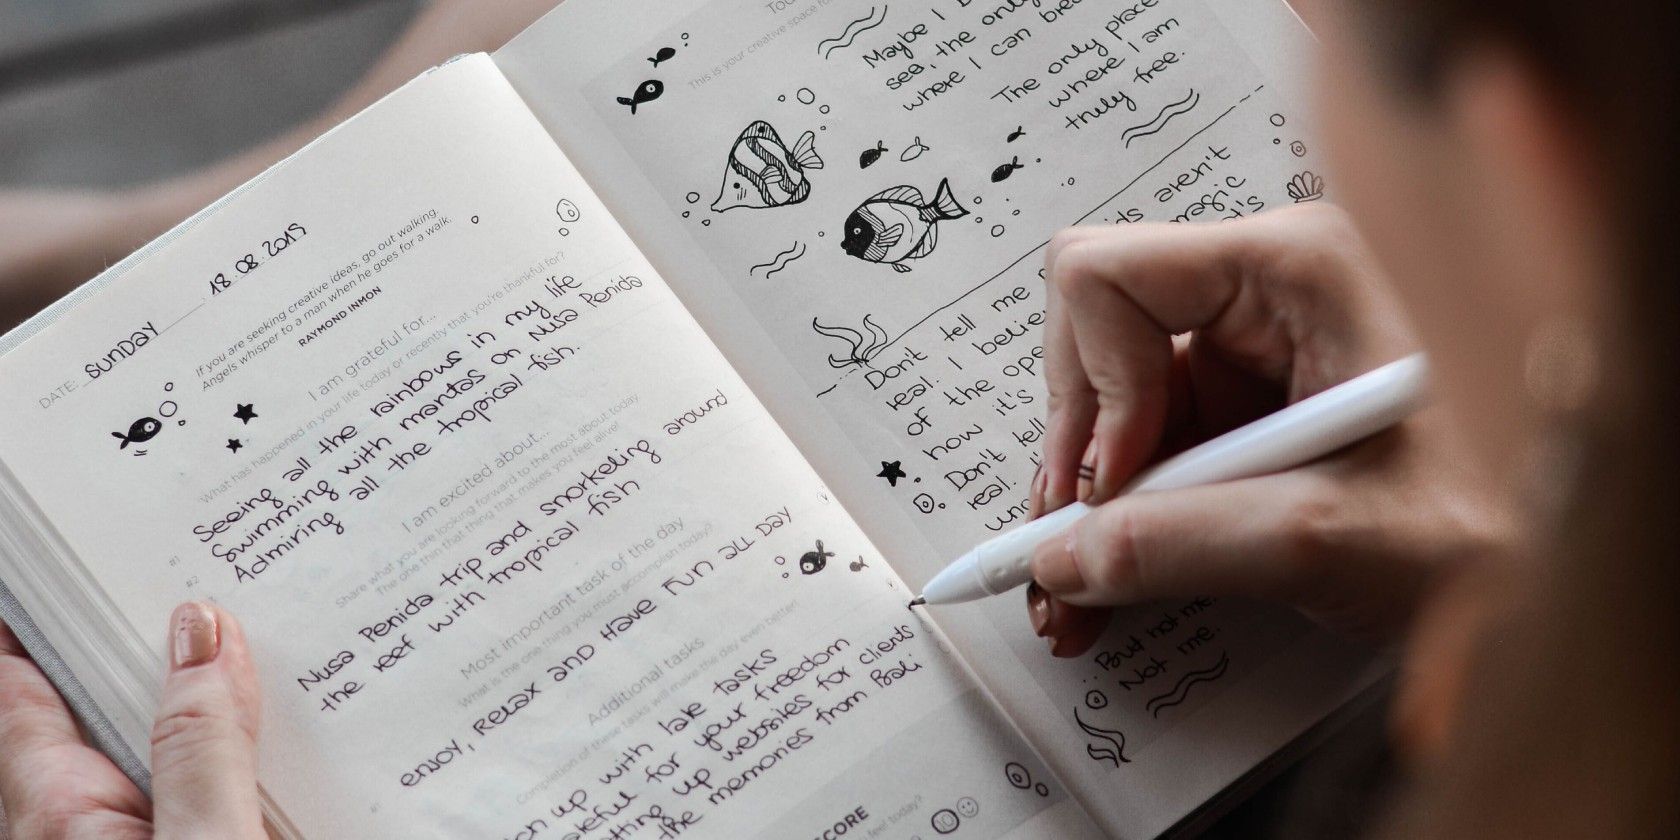 DATE: SUNDAY 18.08.2019
If you are seeking creative ideas, go out walking.
Angels whisper to a man when he goes for a walk.
RAYMOND INMON
I am grateful for...
What has happened in your life today or recently that you're thankful for?
#1 Seeing all the rainbows in my life
#2 Swimming with mantas on Nusa Penida
Admiring all the tropical fish.
I am excited about...
Share what you are looking forward to the most about today
The one thing that makes you feel alive!
Nusa Penida trip and snorkeling around
the reef with tropical fish
Most important task of the day
What is the one thing you must accomplish today?
ENJOY, RELAX AND HAVE FUN ALL DAY
Additional tasks
Completion of these tasks will make the day even better!
#1
up with late tasks
for your freedom
up websites for clients
the memories from Bali
SCORE
feel today?
10
This is your creative space for
Maybe I
sea, the only
where I can
The only place
where I am
truly free.
aren't
magic
Don't tell me
real. I
of the
how it's
Don't tell
real.
But not me.
Not me.